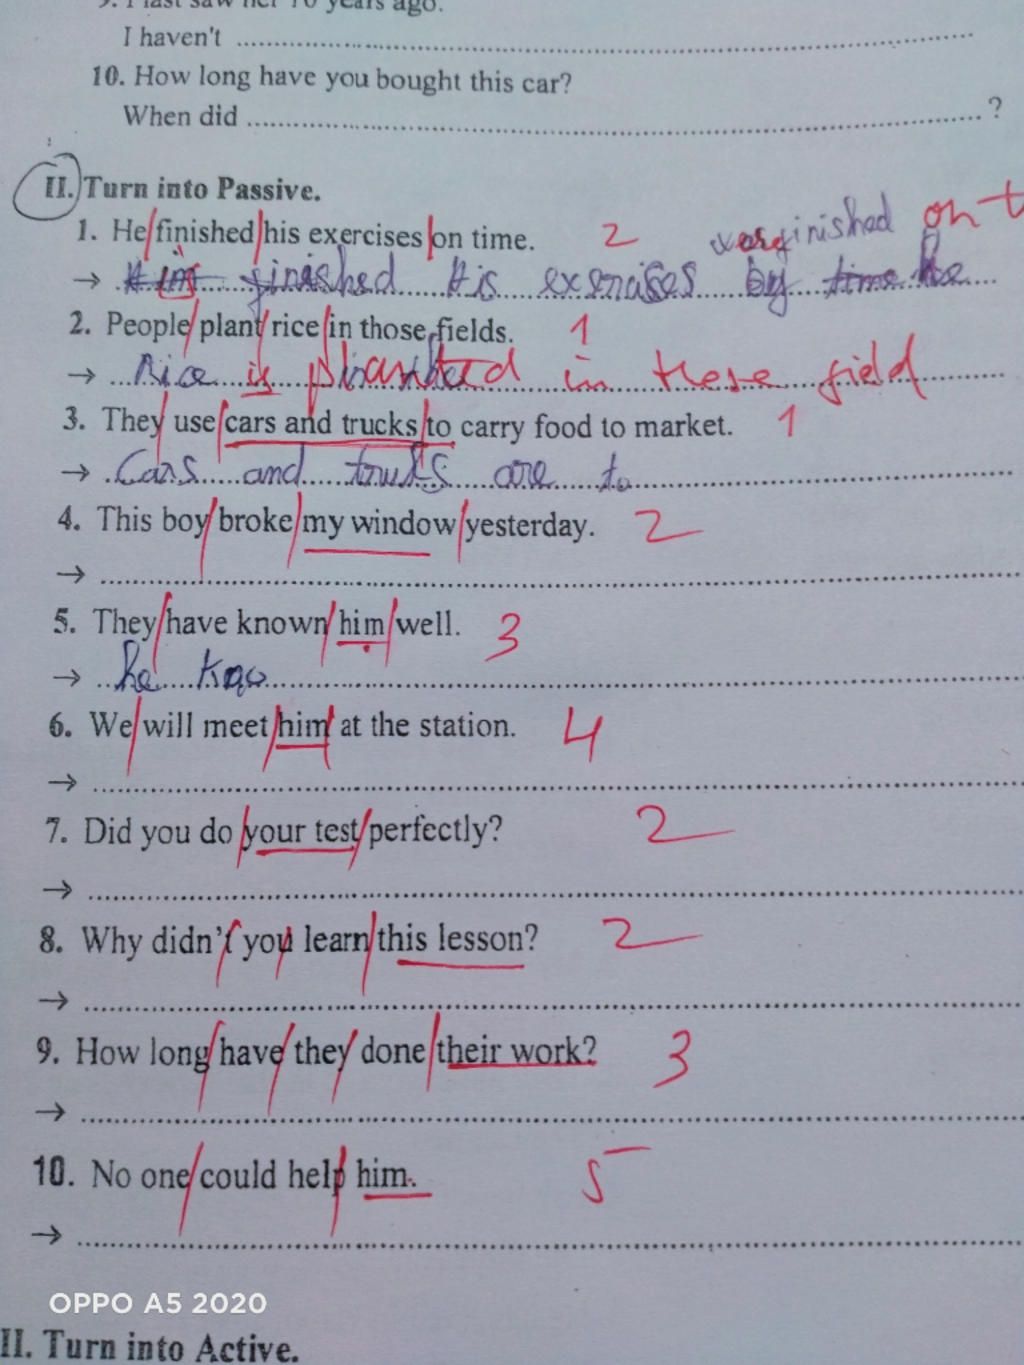 9. I last saw her 10 years ago.
I haven't ........
10. How long have you bought this car?
When did ........?
II. Turn into Passive.
1. He finished his exercises on time. 2 finished on t
→ finished His exercises by time he
2. People plant rice in those fields. 1
→ Rice is planted in these field
3. They use cars and trucks to carry food to market. 1
→ Cars and trucks are to
4. This boy broke my window yesterday. 2
→ ........
5. They have known him well. 3
→ he kno
6. We will meet him at the station. 4
→ ........
7. Did you do your test perfectly? 2
→ ........
8. Why didn't you learn this lesson? 2
→ ........
9. How long have they done their work? 3
→ ........
10. No one could help him. 5
→ ........
OPPO A5 2020
II. Turn into Active.